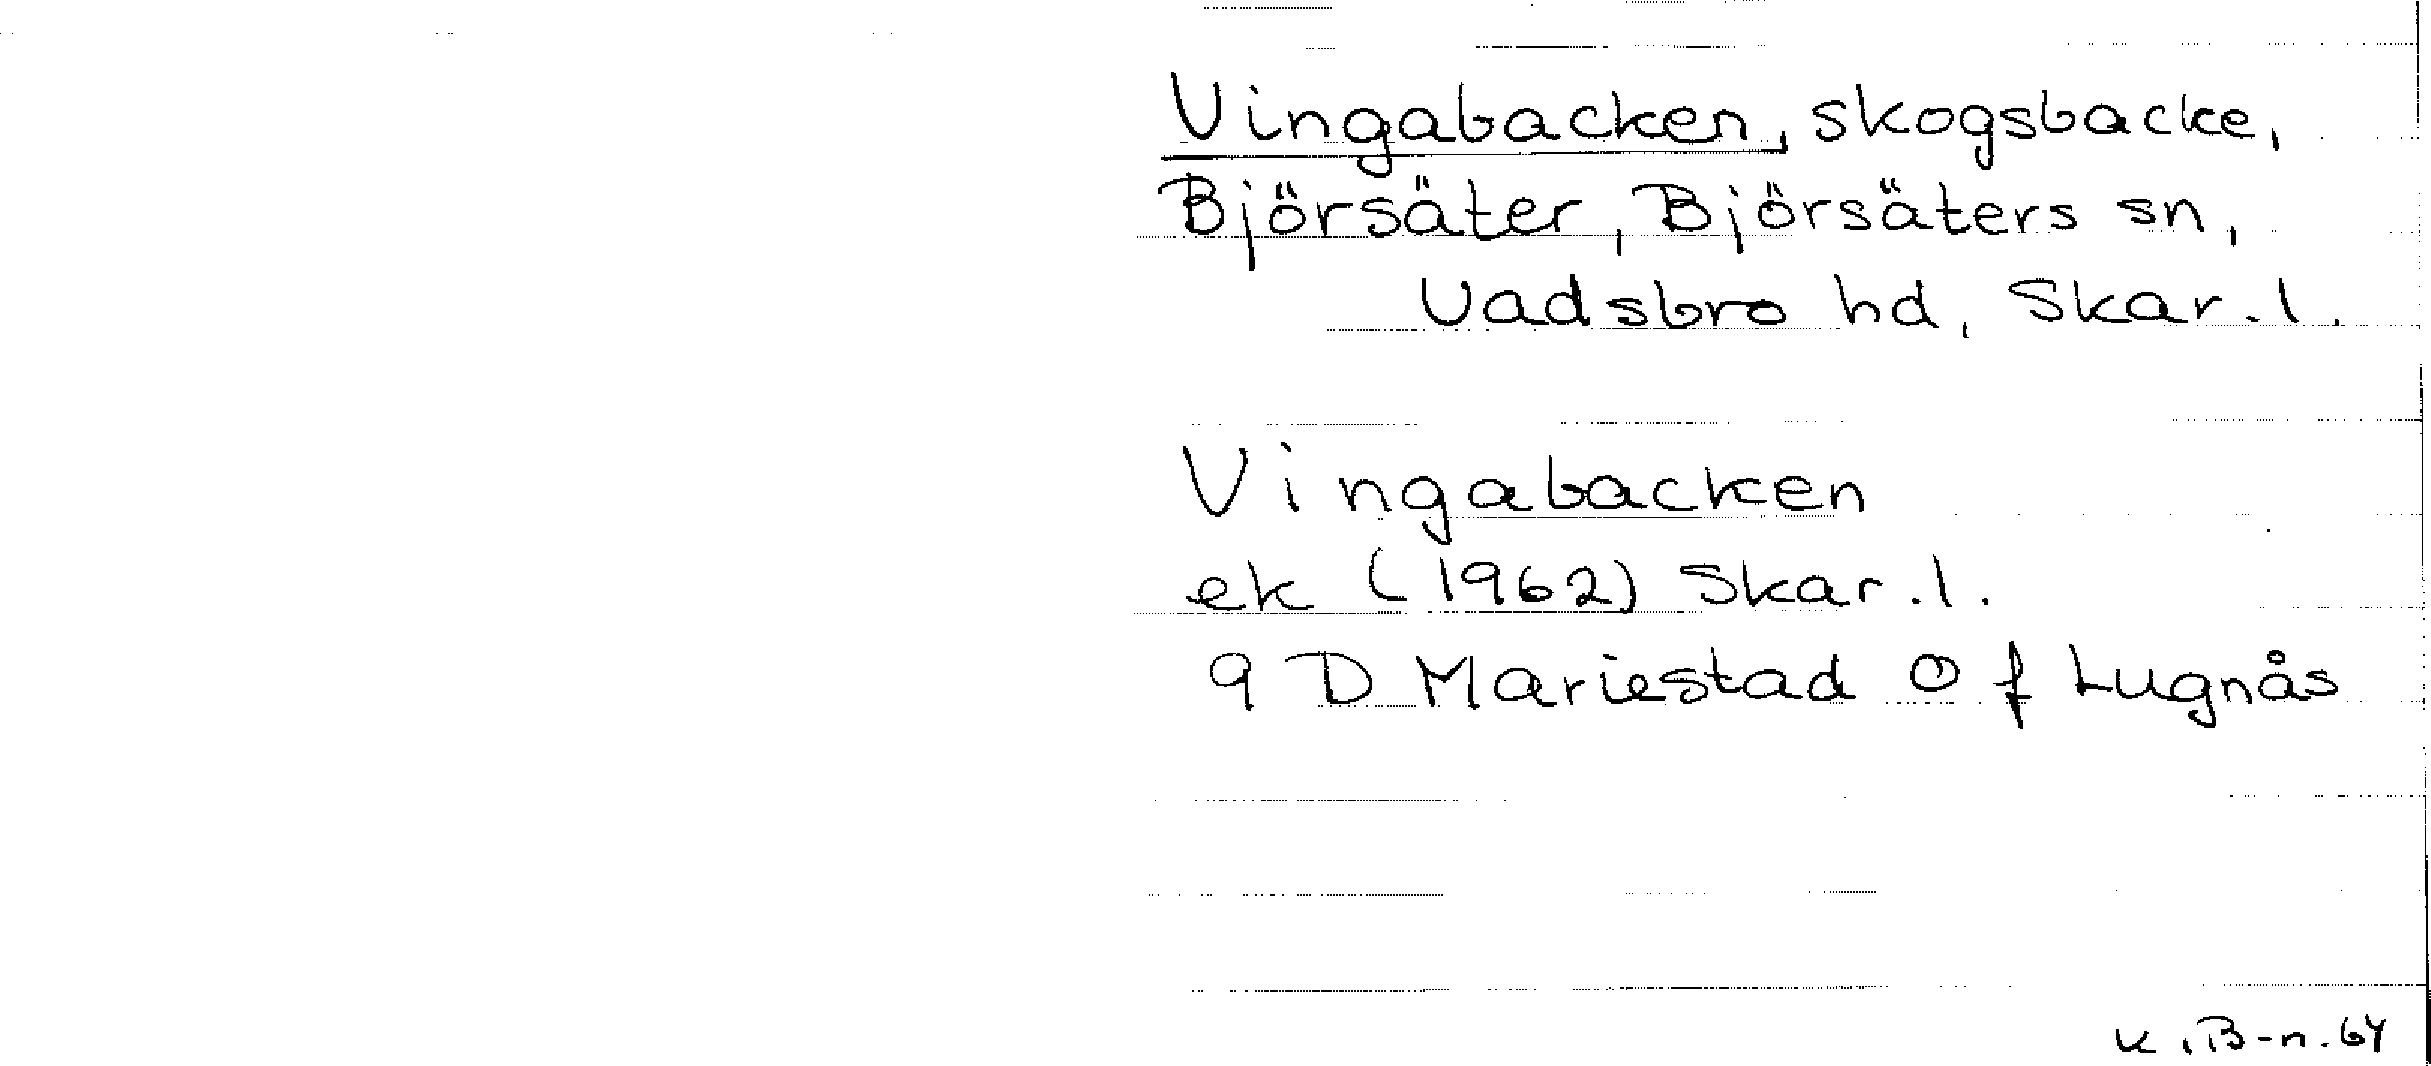 Vingabacken, skogsbacke,
Björsäter, Björsäters sn,
Vadsbro hd, Skar.l.
Vingabacken
ek (1962) Skar.l.
9 D Mariestad O f Lugnås
K.B-n.64